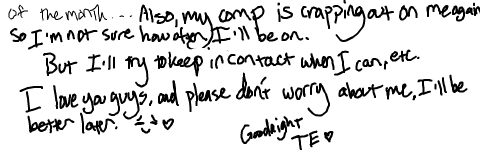 of the month... Also, my comp is crapping out on me again
so I'm not sure how often I'll be on.
But I'll try to keep in contact when I can, etc.
I love you guys, and please don't worry about me, I'll be
better later. ♡
Goodnight
TE ♡